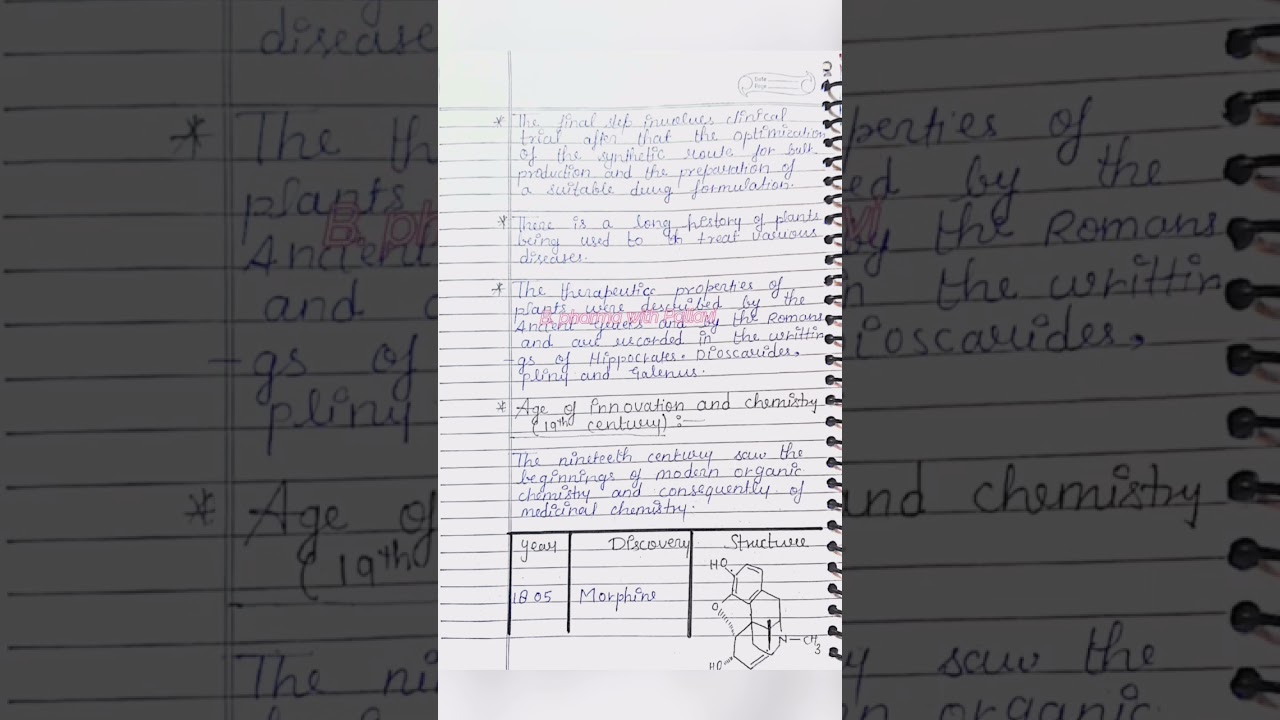 Date
Page
* The final step involves clinical
trial after that the optimization
of the synthetic route for bulk
production and the preparation of
a suitable drug formulation.
* There is a long history of plants
being used to treat various
diseases.
* The therapeutic properties of
plants were described by the
Ancient and by the Romans
and are recorded in the writtin
-gs of Hippocrates. Dioscarides,
pliny and Galenus.
B. pharma with Pallavi
* Age of innovation and chemistry
(19th century) :—
The nineteeth century saw the
beginnings of modern organic
chemistry and consequently of
medicinal chemistry.
year Discovery Structure
1805 Morphine
HO
O
N-CH3
HO